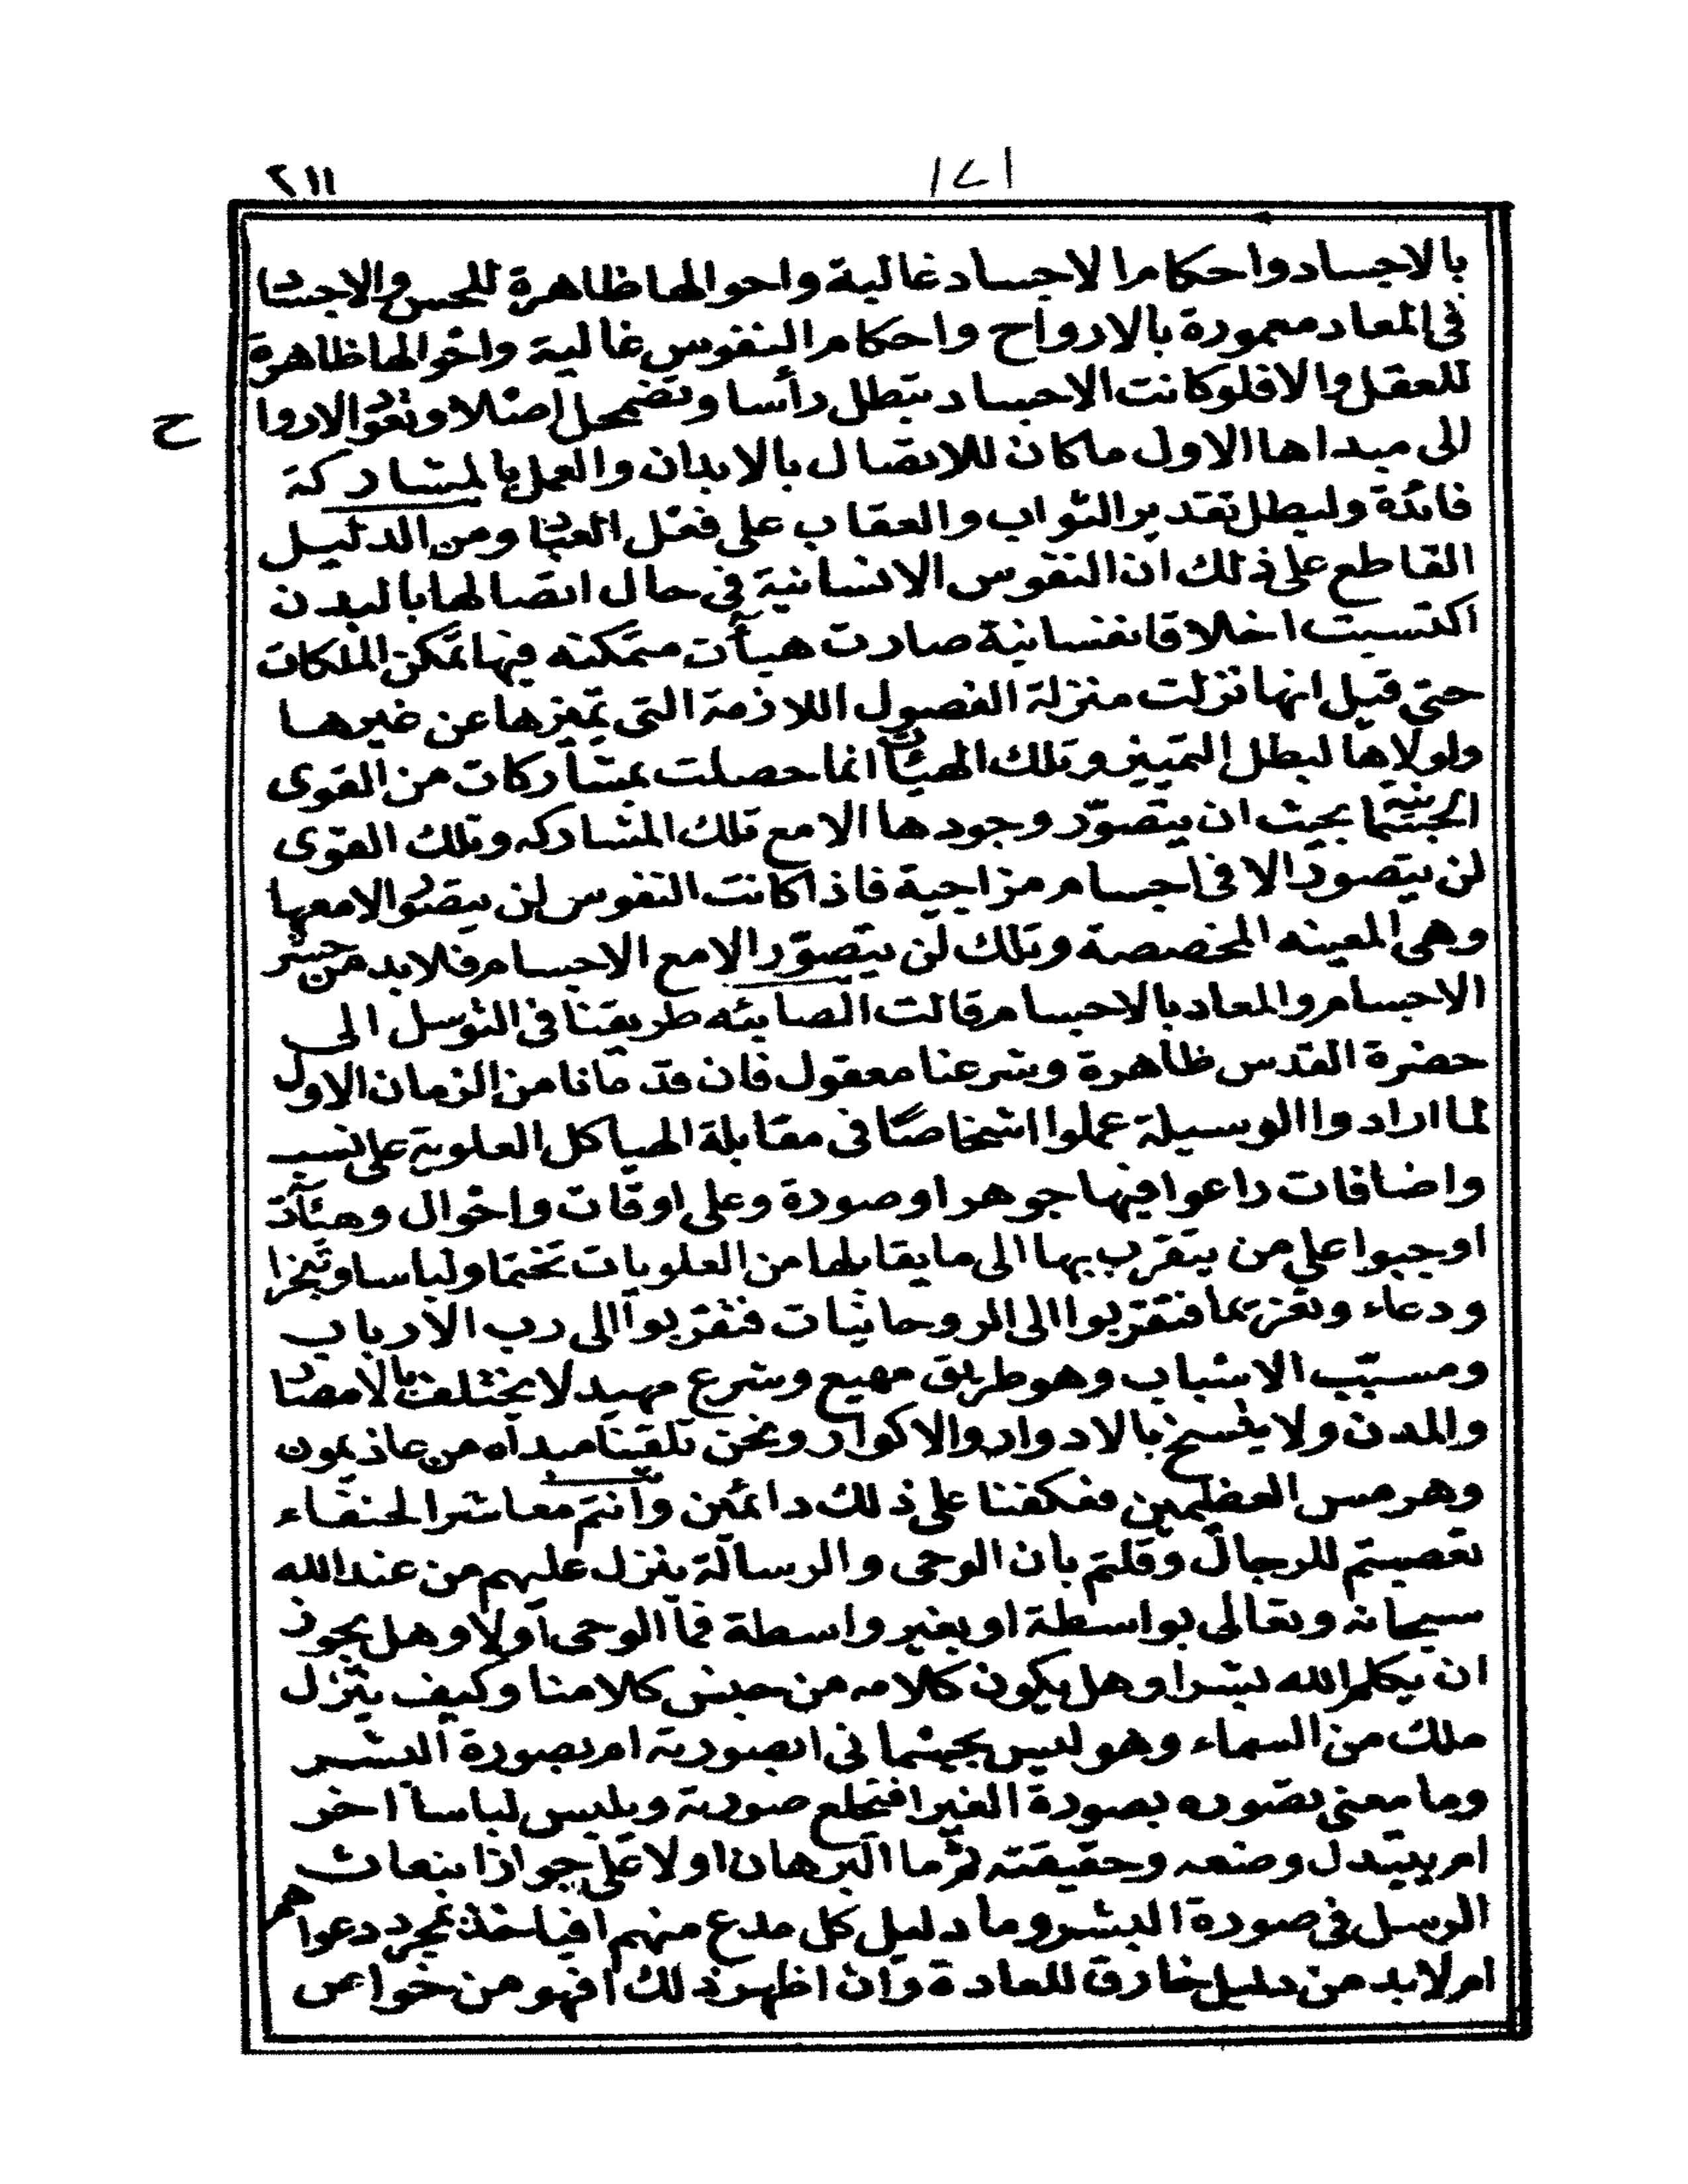 ١٧١
٢١١
بالاجساد واحكام الاجساد غالبة واحوالها ظاهرة للحس والاجساد
فى المعاد معمورة بالارواح واحكام النفوس غالبة واحوالها ظاهرة
للعقل والا فلو كانت الاجساد تبطل رأسا وتضمحل اصلا وتعود الاروا
ح
الى مبداها الاول ما كان للاتصال بالابدان والعمل بالمشاركة
فائدة ولبطل تقدير الثواب والعقاب على فعل العباد ومن الدليل
القاطع على ذلك ان النفوس الانسانية فى حال اتصالها بالبدن
اكتسبت اخلاقا نفسانية صارت هيآت متمكنه فيها تمكن الملكات
حتى قيل انها نزلت منزلة الفصول اللازمة التى تميزها عن غيرها
ولولاها لبطل التمييز وتلك الهيئات انما حصلت بمشاركات من القوى
الجسمانية بحيث ان يتصور وجودها الا مع تلك المشاركه وتلك القوى
لن يتصور الا فى اجسام مزاجية فاذا كانت النفوس لن يتصور الا معها
وهى المعينه المخصصة وتلك لن يتصور الا مع الاجسام فلا بد من حشر
الاجسام والمعاد بالاجسام قالت الصابئه طريقنا فى التوسل الى
حضرة القدس ظاهرة وشرعنا معقول فان قدمانا من الزمان الاول
لما ارادوا الوسيلة عملوا اشخاصا فى مقابلة الهياكل العلوية على نسب
واضافات راعوا فيها جوهرا وصورة وعلى اوقات واحوال وهيئآت
اوجبوا على من يتقرب بها الى ما يقابلها من العلويات تختما ولباسا وتبخرا
ودعاء وتعزيما فتقربوا الى الروحانيات فتقربوا الى رب الارباب
ومسبب الاسباب وهو طريق مهيع وشرع مهيد لا يختلف بالامصار
والمدن ولا ينسخ بالادوار والاكوار ونحن تلقينا مبدأه من عاذيمون
وهرمس العظيمين فعكفنا على ذلك دائمين وانتم معاشر الحنفاء
تعصبتم للرجال وقلتم بان الوحى والرسالة ينزل عليهم من عند الله
سبحانه وتعالى بواسطة او بغير واسطة فما الوحى اولا وهل يجوز
ان يكلم الله بشرا وهل يكون كلامه من جنس كلامنا وكيف ينزل
ملك من السماء وهو ليس بجسمانى ابصورته ام بصورة البشر
وما معنى تصوره بصورة الغير افيخلع صورته ويلبس لباسا اخر
ام يتبدل وضعه وحقيقته ثم ما البرهان اولا على جواز انبعاث
الرسل فى صورة البشر وما دليل كل مدع منهم افياخذ بمجرد دعواهم
ام لا بد من دليل خارق للعادة وان اظهر ذلك افهو من خواص